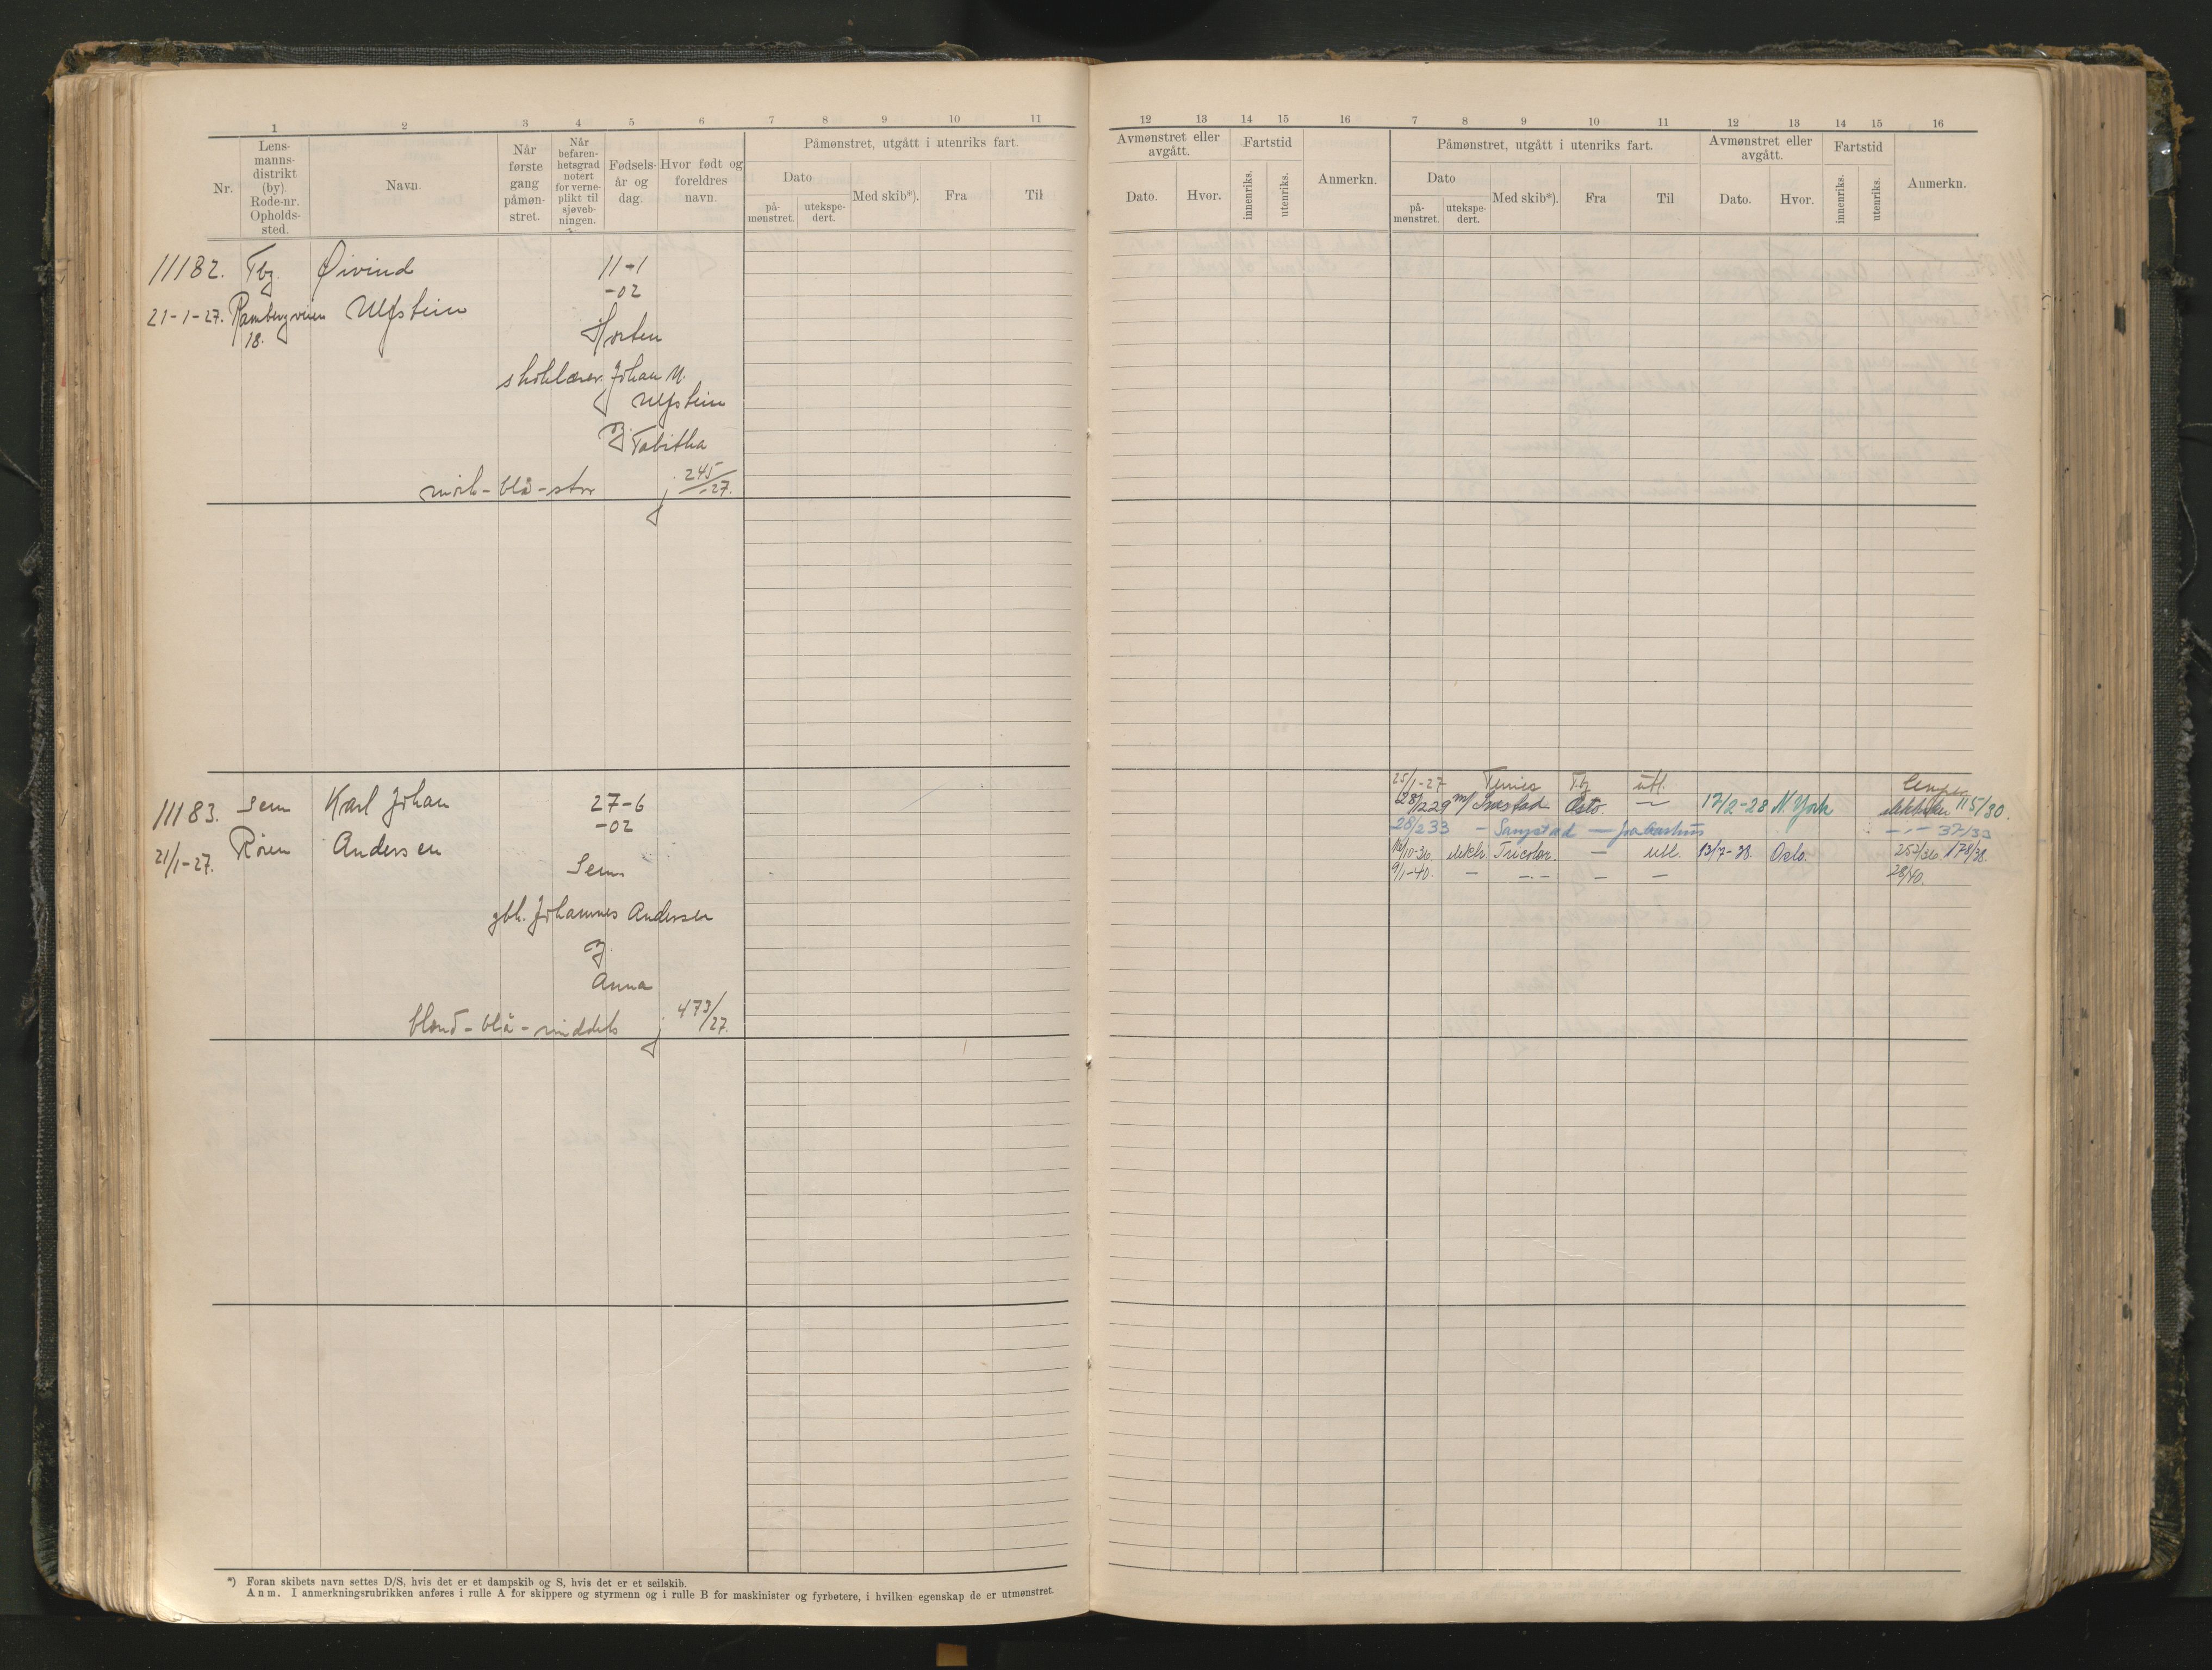 1 2 3 4 5 6 7 8 9 10 11
Nr.
Lens-
manns-
distrikt
(by).
Rode-nr.
Opholds-
sted.
Navn.
Når
første
gang
påmøn-
stret.
Når
befaren-
hetsgrad
notert
for verne-
plikt til
sjøveb-
ningen.
Fødsels-
år og
dag.
Hvor født og
foreldres
navn.
Påmønstret, utgått i utenriks fart.
Dato
på-
mønstret.
utekspe-
dert.
Med skib*).
Fra
Til
11182. Tbg. Øivind 11-1
-02
21-1-27. Rambergveien Ulfstein
18.
Horten
Johan M.
Ulfstein
Tabitha
mørk - blå - stor j 245/-27.
11183. Sem Karl Johan 27-6
-02
21/1-27. Røren Andersen
Sem.
gbh. Johannes Andersen
Anna
blond - blå - middels j 473/27.
*) Foran skibets navn settes D/S, hvis det er et dampskib og S, hvis det er et seilskib.
Anm. I anmerkningsrubrikken anføres i rulle A for skippere og styrmenn og i rulle B for maskinister og fyrbøtere, i hvilken egenskap de er utmønstret.
12 13 14 15 16 7 8 9 10 11 12 13 14 15 16
Avmønstret eller
avgått.
Dato.
Hvor.
Fartstid
innenriks.
utenriks.
Anmerkn.
Påmønstret, utgått i utenriks fart.
Dato
på-
mønstret.
utekspe-
dert.
Med skib*).
Fra
Til
Avmønstret eller
avgått.
Dato.
Hvor.
Fartstid
innenriks.
utenriks.
Anmerkn.
25/1-27 Tbg utl.
28/2 29 m/ Oslo. — 17/2-28 N York elektriker 115/30.
28/2 33 - — fra Aarhus - " - 37/33
16/10-36. elektr. Tricolor. — utl. 13/7-38. Oslo. 253/36. 178/38.
9/1-40. — — " — — — 28/40.